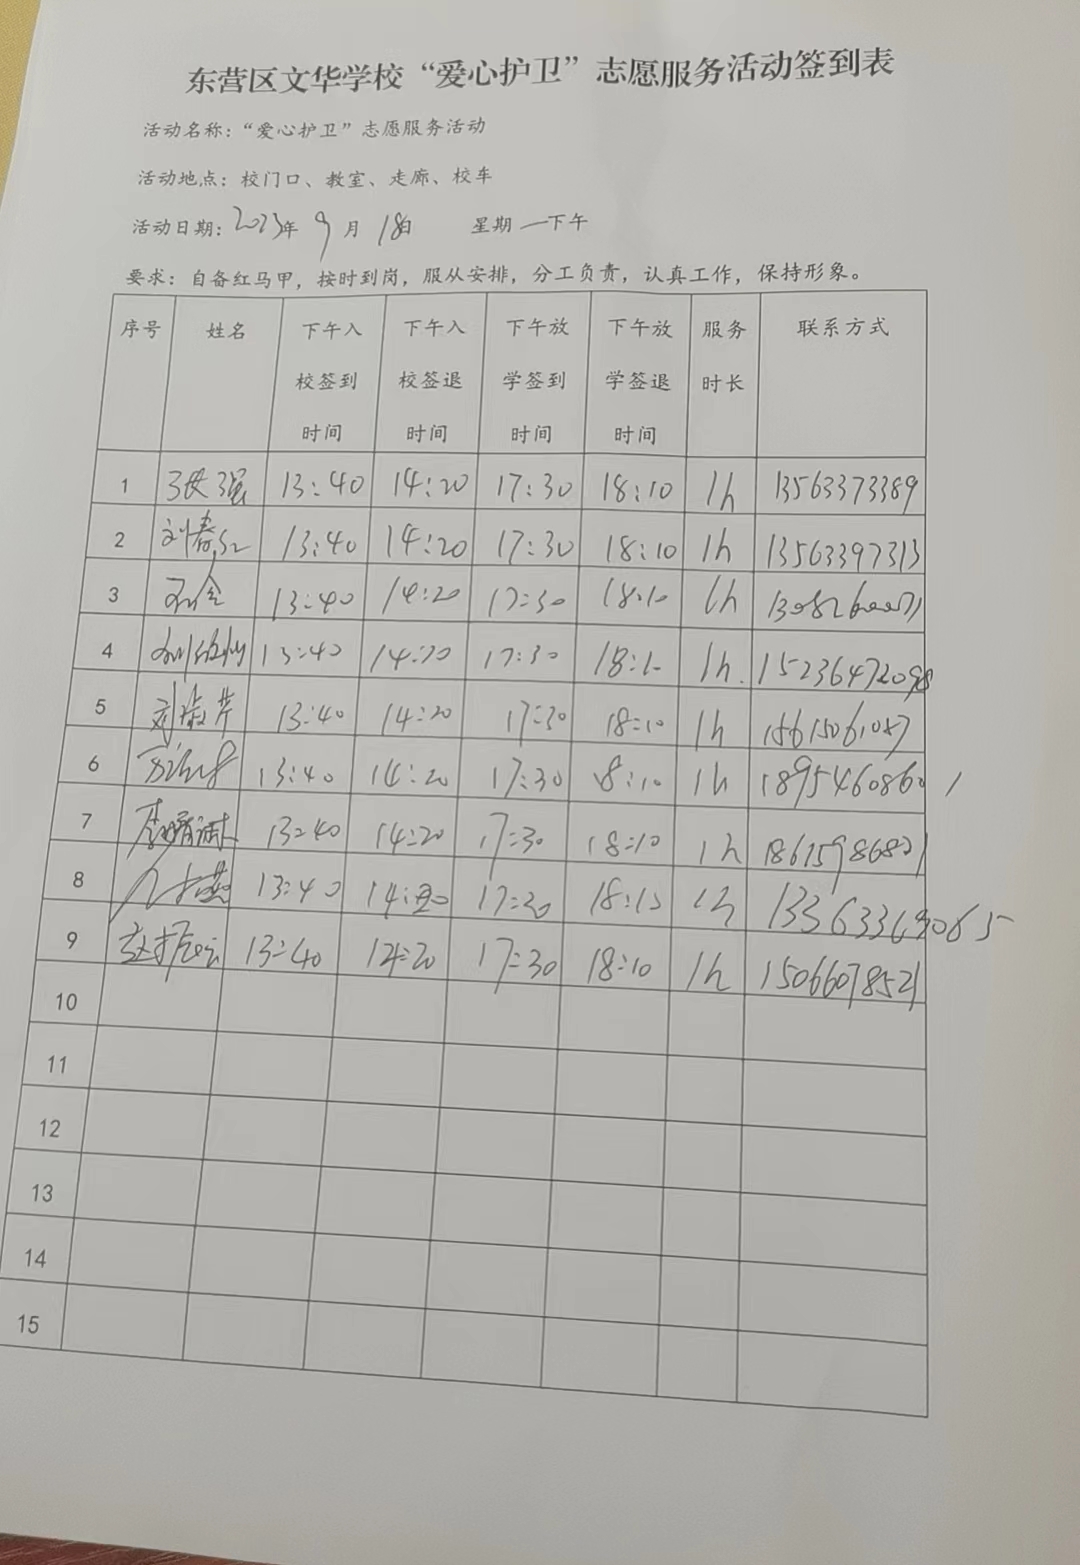 东营区文华学校“爱心护卫”志愿服务活动签到表
活动名称：“爱心护卫”志愿服务活动
活动地点：校门口、教室、走廊、校车
活动日期：2023年 9月 18日 星期一下午
要求：自备红马甲，按时到岗，服从安排，分工负责，认真工作，保持形象。
序号 姓名 下午入校签到时间 下午入校签退时间 下午放学签到时间 下午放学签退时间 服务时长 联系方式
1 张强 13:40 14:20 17:30 18:10 1h 13563373389
2 刘春红 13:40 14:20 17:30 18:10 1h 13563397313
3 13:40 14:20 17:30 18:10 1h
4 13:40 14:20 17:30 18:10 1h. 15236472098
5 刘淑芹 13:40 14:20 17:30 18:10 1h 15615061057
6 13:40 14:20 17:30 18:10 1h 18954608601
7 13:40 14:20 17:30 18:10 1h
8 13:40 14:20 17:30 18:10 1h
9 13:40 14:20 17:30 18:10 1h 15066078521
10
11
12
13
14
15